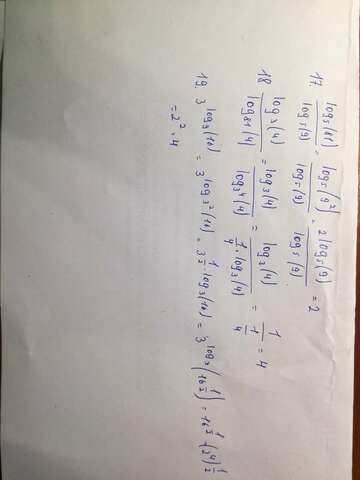 17. log₅(81)/log₅(9) = log₅(9²)/log₅(9) = 2log₅(9)/log₅(9) = 2
18 log₃(4)/log₈₁(4) = log₃(4)/log₃⁴(4) = log₃(4)/(1/4 · log₃(4)) = 1/(1/4) = 4
19. 3^log₉(16) = 3^log₃²(16) = 3^(1/2 · log₃(16)) = 3^log₃(16^(1/2)) = 16^(1/2) = (2⁴)^(1/2)
= 2² = 4